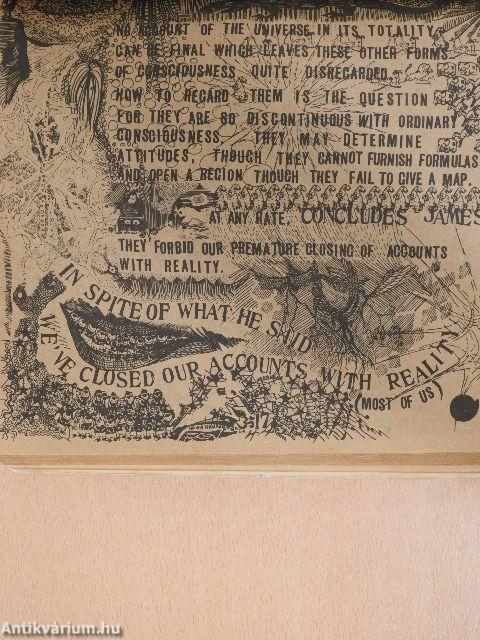 NO ACCOUNT OF THE UNIVERSE IN ITS TOTALITY
CAN BE FINAL WHICH LEAVES THESE OTHER FORMS
OF CONSCIOUSNESS QUITE DISREGARDED.
HOW TO REGARD THEM IS THE QUESTION
FOR THEY ARE SO DISCONTINUOUS WITH ORDINARY
CONSCIOUSNESS. THEY MAY DETERMINE
ATTITUDES, THOUGH THEY CANNOT FURNISH FORMULAS
AND OPEN A REGION THOUGH THEY FAIL TO GIVE A MAP.
AT ANY RATE, CONCLUDES JAMES
THEY FORBID OUR PREMATURE CLOSING OF ACCOUNTS
WITH REALITY.
IN SPITE OF WHAT HE SAID
WE'VE CLOSED OUR ACCOUNTS WITH REALITY
(MOST OF US)
Antikvárium.hu